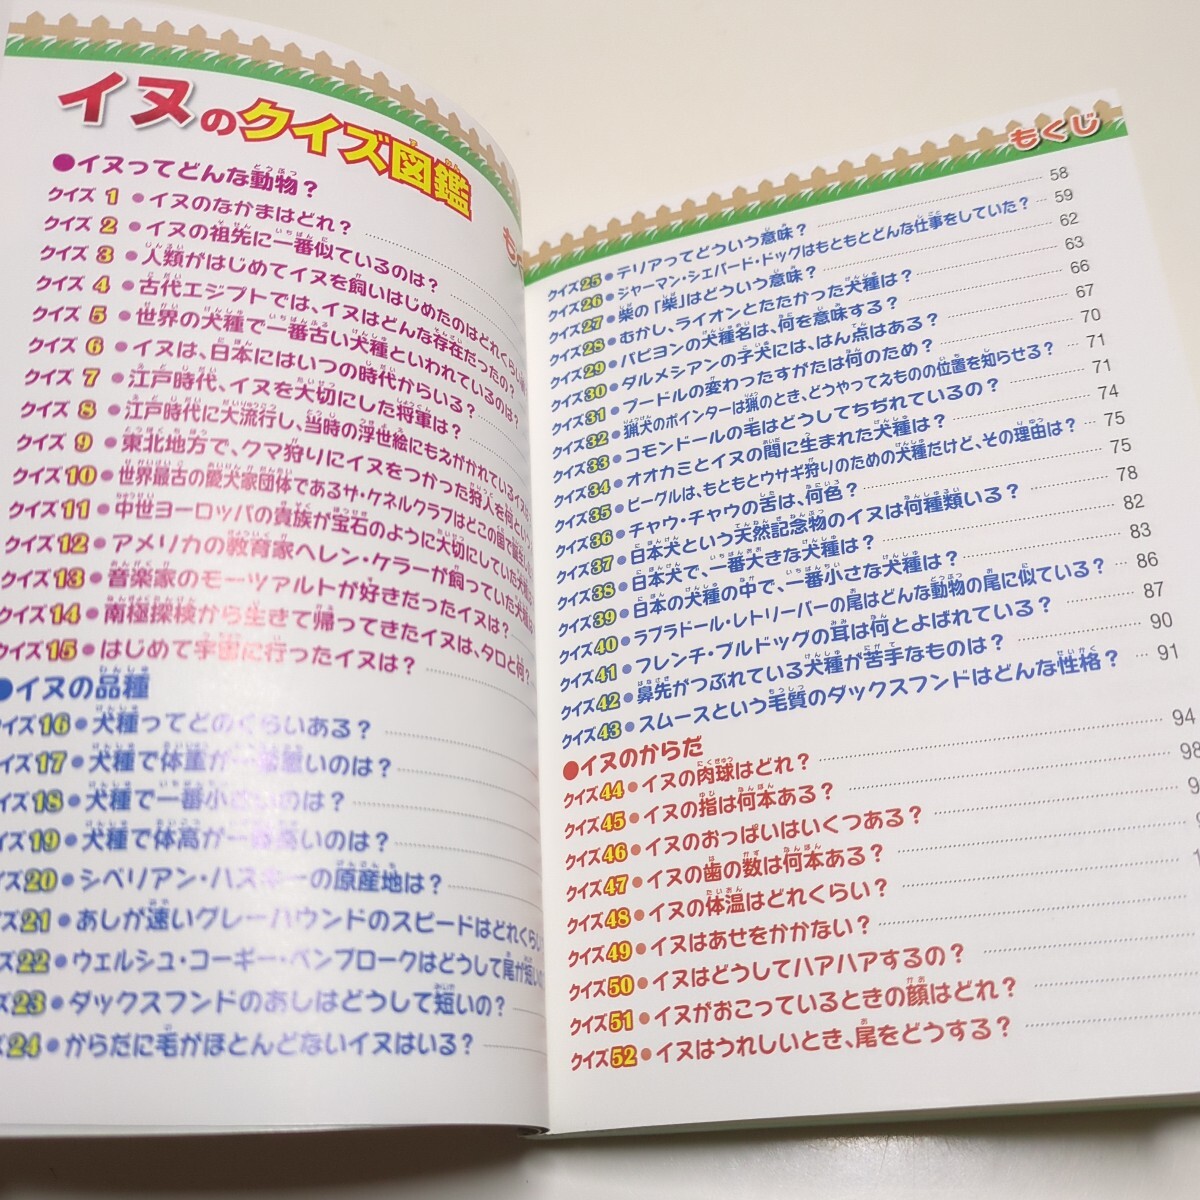 イヌのクイズ図鑑
●イヌってどんな動物？
クイズ1●イヌのなかまはどれ？
クイズ2●イヌの祖先に一番似ているのは？
クイズ3●人類がはじめてイヌを飼いはじめたのはどれくらい
クイズ4●古代エジプトでは、イヌはどんな存在だったの？
クイズ5●世界の犬種で一番古い犬種といわれているのは？
クイズ6●イヌは、日本にはいつの時代からいる？
クイズ7●江戸時代、イヌを大切にした将軍は？
クイズ8●江戸時代に大流行し、当時の浮世絵にもえがかれているイヌ
クイズ9●東北地方で、クマ狩りにイヌをつかった狩人を何という
クイズ10●世界最古の愛犬家団体であるザ・ケネルクラブはどこの国で
クイズ11●中世ヨーロッパの貴族が宝石のように大切にしていた犬種
クイズ12●アメリカの教育家ヘレン・ケラーが飼っていた犬種は
クイズ13●音楽家のモーツァルトが好きだったイヌは？
クイズ14●南極探検から生きて帰ってきたイヌは、タロと何？
クイズ15●はじめて宇宙に行ったイヌは？
●イヌの品種
クイズ16●犬種ってどのくらいある？
イズ17●犬種で体重が一番重いのは？
イズ18●犬種で一番小さいのは？
イズ19●犬種で体高が一番高いのは？
イズ20●シベリアン・ハスキーの原産地は？
イズ21●あしが速いグレーハウンドのスピードはどれくらい
ズ22●ウェルシュ・コーギー・ペンブロークはどうして尾が短いの
ズ23●ダックスフンドのあしはどうして短いの？
ズ24●からだに毛がほとんどないイヌはいる？
もくじ
クイズ25●テリアってどういう意味？ 58
クイズ26●ジャーマン・シェパード・ドッグはもともとどんな仕事をしていた？ 59
クイズ27●柴の「柴」はどういう意味？ 62
クイズ28●むかし、ライオンとたたかった犬種は？ 63
クイズ29●パピヨンの犬種名は、何を意味する？ 66
クイズ30●ダルメシアンの子犬には、はん点はある？ 67
クイズ31●プードルの変わったすがたは何のため？ 70
クイズ32●猟犬のポインターは猟のとき、どうやってえものの位置を知らせる？ 71
クイズ33●コモンドールの毛はどうしてちぢれているの？ 71
クイズ34●オオカミとイヌの間に生まれた犬種は？ 74
クイズ35●ビーグルは、もともとウサギ狩りのための犬種だけど、その理由は？ 75
クイズ36●チャウ・チャウの舌は、何色？ 75
クイズ37●日本犬という天然記念物のイヌは何種類いる？ 78
クイズ38●日本犬で、一番大きな犬種は？ 82
クイズ39●日本の犬種の中で、一番小さな犬種は？ 83
クイズ40●ラブラドール・レトリーバーの尾はどんな動物の尾に似ている？ 86
クイズ41●フレンチ・ブルドッグの耳は何とよばれている？ 87
クイズ42●鼻先がつぶれている犬種が苦手なものは？ 90
クイズ43●スムースという毛質のダックスフンドはどんな性格？ 91
●イヌのからだ
クイズ44●イヌの肉球はどれ？ 94
クイズ45●イヌの指は何本ある？ 98
クイズ46●イヌのおっぱいはいくつある？
クイズ47●イヌの歯の数は何本ある？
クイズ48●イヌの体温はどれくらい？
クイズ49●イヌはあせをかかない？
クイズ50●イヌはどうしてハアハアするの？
クイズ51●イヌがおこっているときの顔はどれ？
クイズ52●イヌはうれしいとき、尾をどうする？